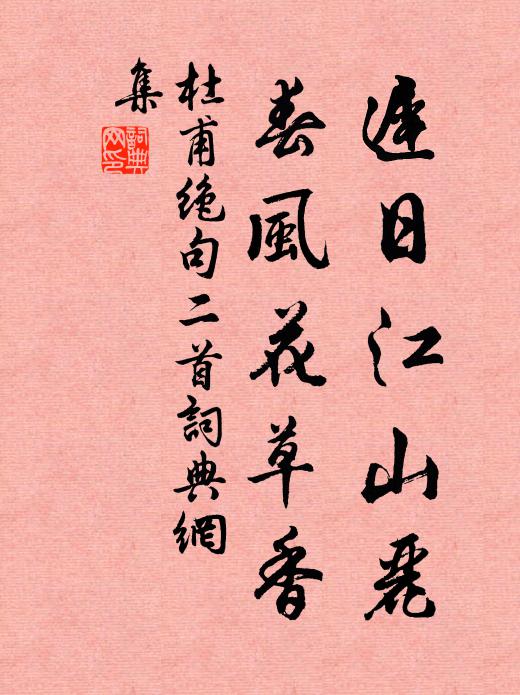 遲日江山麗
春風花草香
杜甫絶句二首詞典網
集
詞典網印